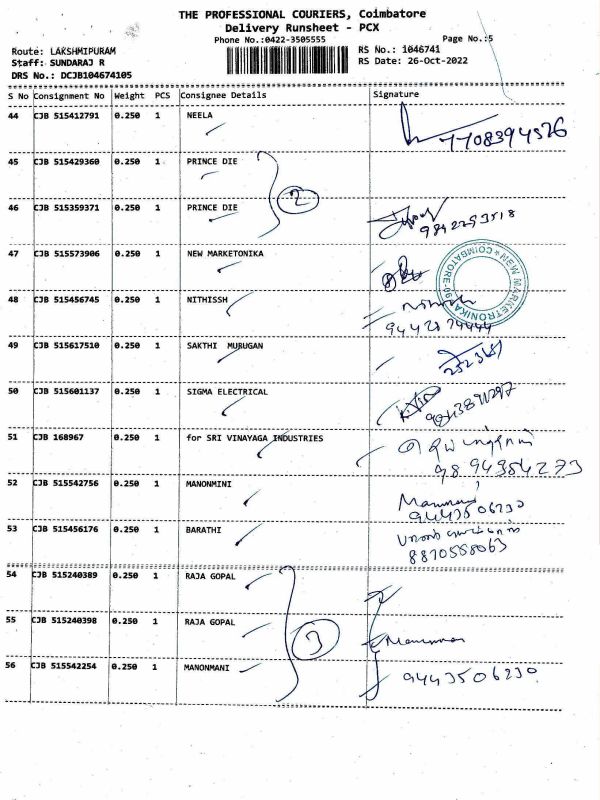 THE PROFESSIONAL COURIERS, Coimbatore
Delivery Runsheet - PCX
Phone No.:0422-3505555
Page No.:5
Route: LAKSHMIPURAM
RS No.: 1046741
Staff: SUNDARAJ R
RS Date: 26-Oct-2022
DRS No.: DCJB104674105
S No Consignment No Weight PCS Consignee Details Signature
44 CJB 515412791 0.250 1 NEELA
7708394526
45 CJB 515429360 0.250 1 PRINCE DIE
2
46 CJB 515359371 0.250 1 PRINCE DIE
9842293518
47 CJB 515573906 0.250 1 NEW MARKETONIKA
NEW MARKETRONIKA * COIMBATORE
48 CJB 515456745 0.250 1 NITHISSH
49 CJB 515617510 0.250 1 SAKTHI MURUGAN
50 CJB 515601137 0.250 1 SIGMA ELECTRICAL
51 CJB 168967 0.250 1 for SRI VINAYAGA INDUSTRIES
52 CJB 515542756 0.250 1 MANONMINI
9443506230
53 CJB 515456176 0.250 1 BARATHI
8870558063
54 CJB 515240389 0.250 1 RAJA GOPAL
55 CJB 515240398 0.250 1 RAJA GOPAL
3
56 CJB 515542254 0.250 1 MANONMANI
9443506230